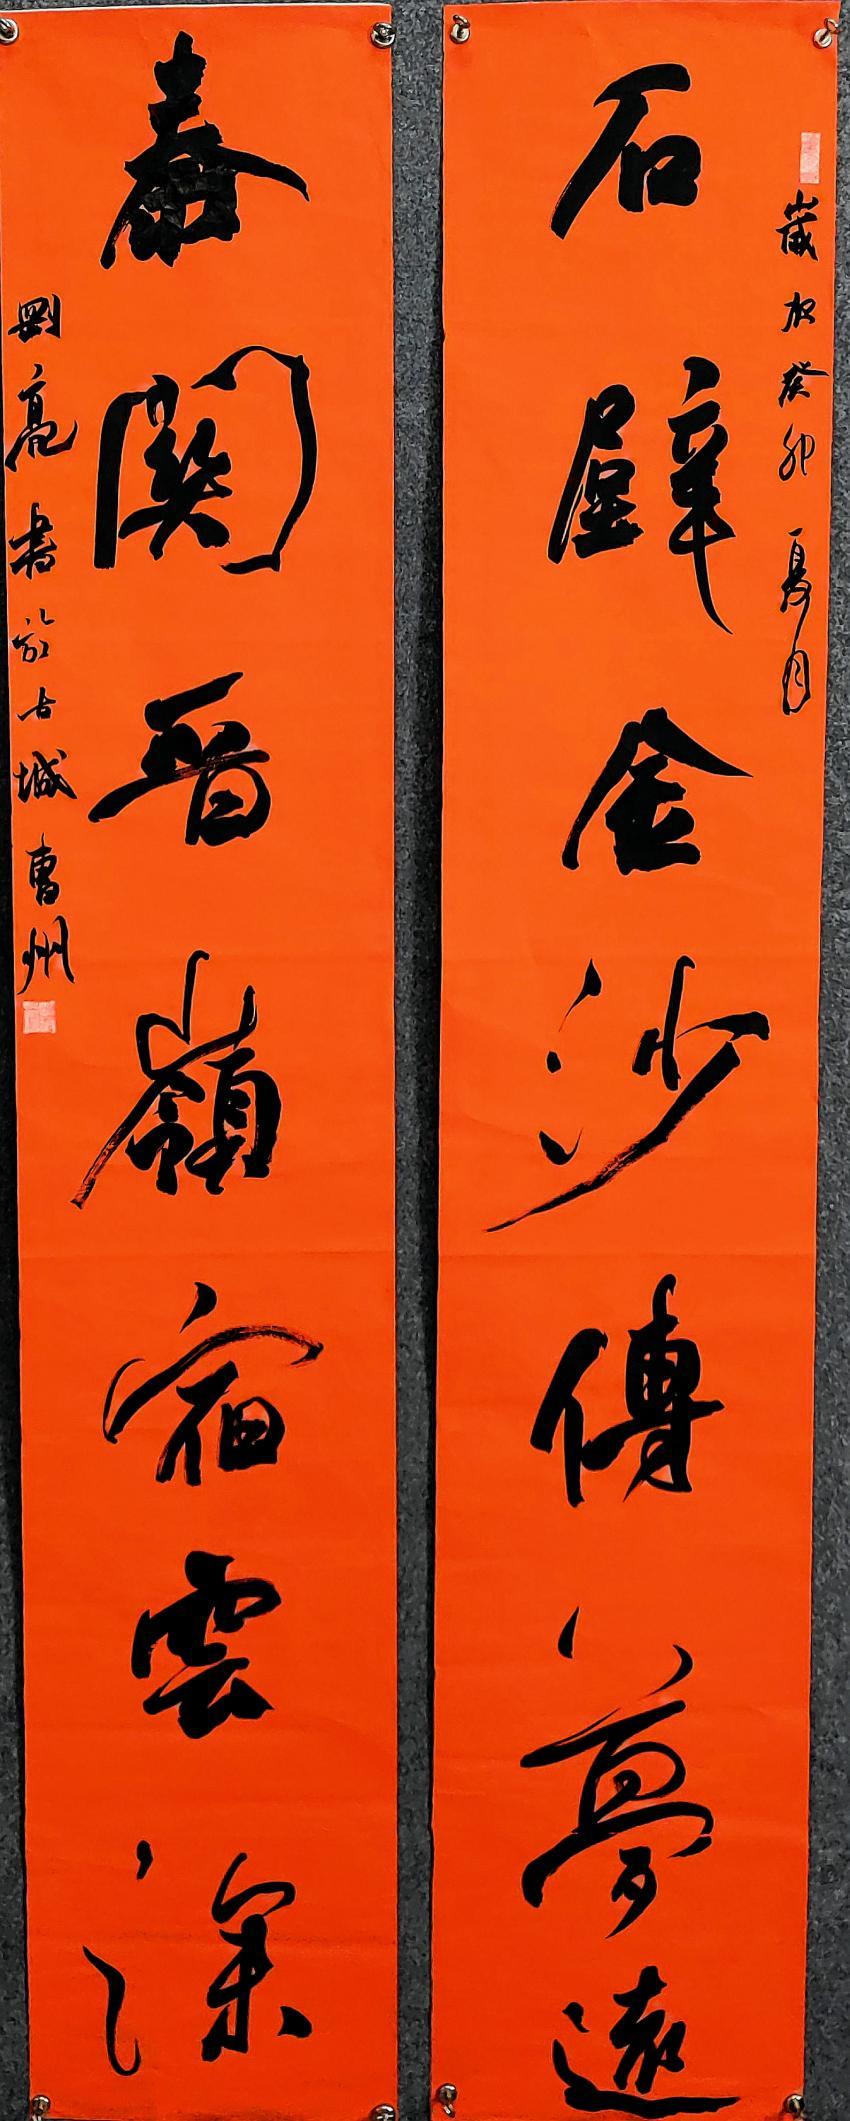 歲在癸卯夏月
石壁金沙傳夢遠
秦關晋嶺宿雲深
劉亮書於古城曹州